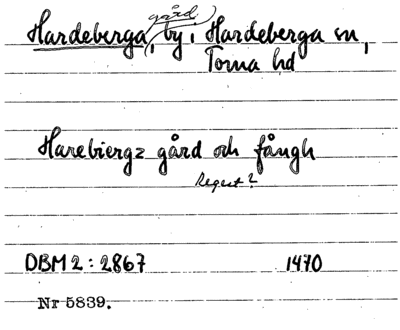 gård
Hardeberga, by i Hardeberga sn,
Torna hd
Harebiergz gård och fångh
Regest?
DBM 2: 2867 1470
Nr 5839.